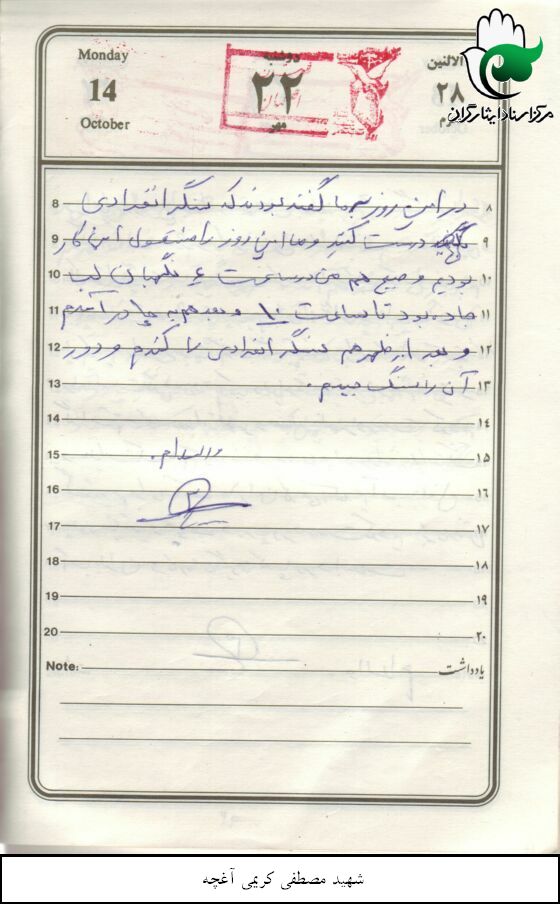 Monday
14
October
دوشنبه
۲۲
مهر
الاثنين
۲۸
مرکز اسناد ایثارگران
8 در این روز به ما گفته بودند که سنگر انفرادی ۸
9 درست کنید و ما این روز را مشغول این کار ۹
10 بودیم و صبح هم من در ساعت ۶ نگهبان لب ۱۰
11 جاده بود تا ساعت ۱۰ و بعد هم به چادر آمدم ۱۱
12 و بعد از ظهر هم سنگر انفرادی را کندم و دور ۱۲
13 آن را سنگ چیدم. ۱۳
14 ۱۴
15 والسلام. ۱۵
16 ۱۶
17 ۱۷
18 ۱۸
19 ۱۹
20 ۲۰
Note: یادداشت
شهید مصطفی کریمی آغچه